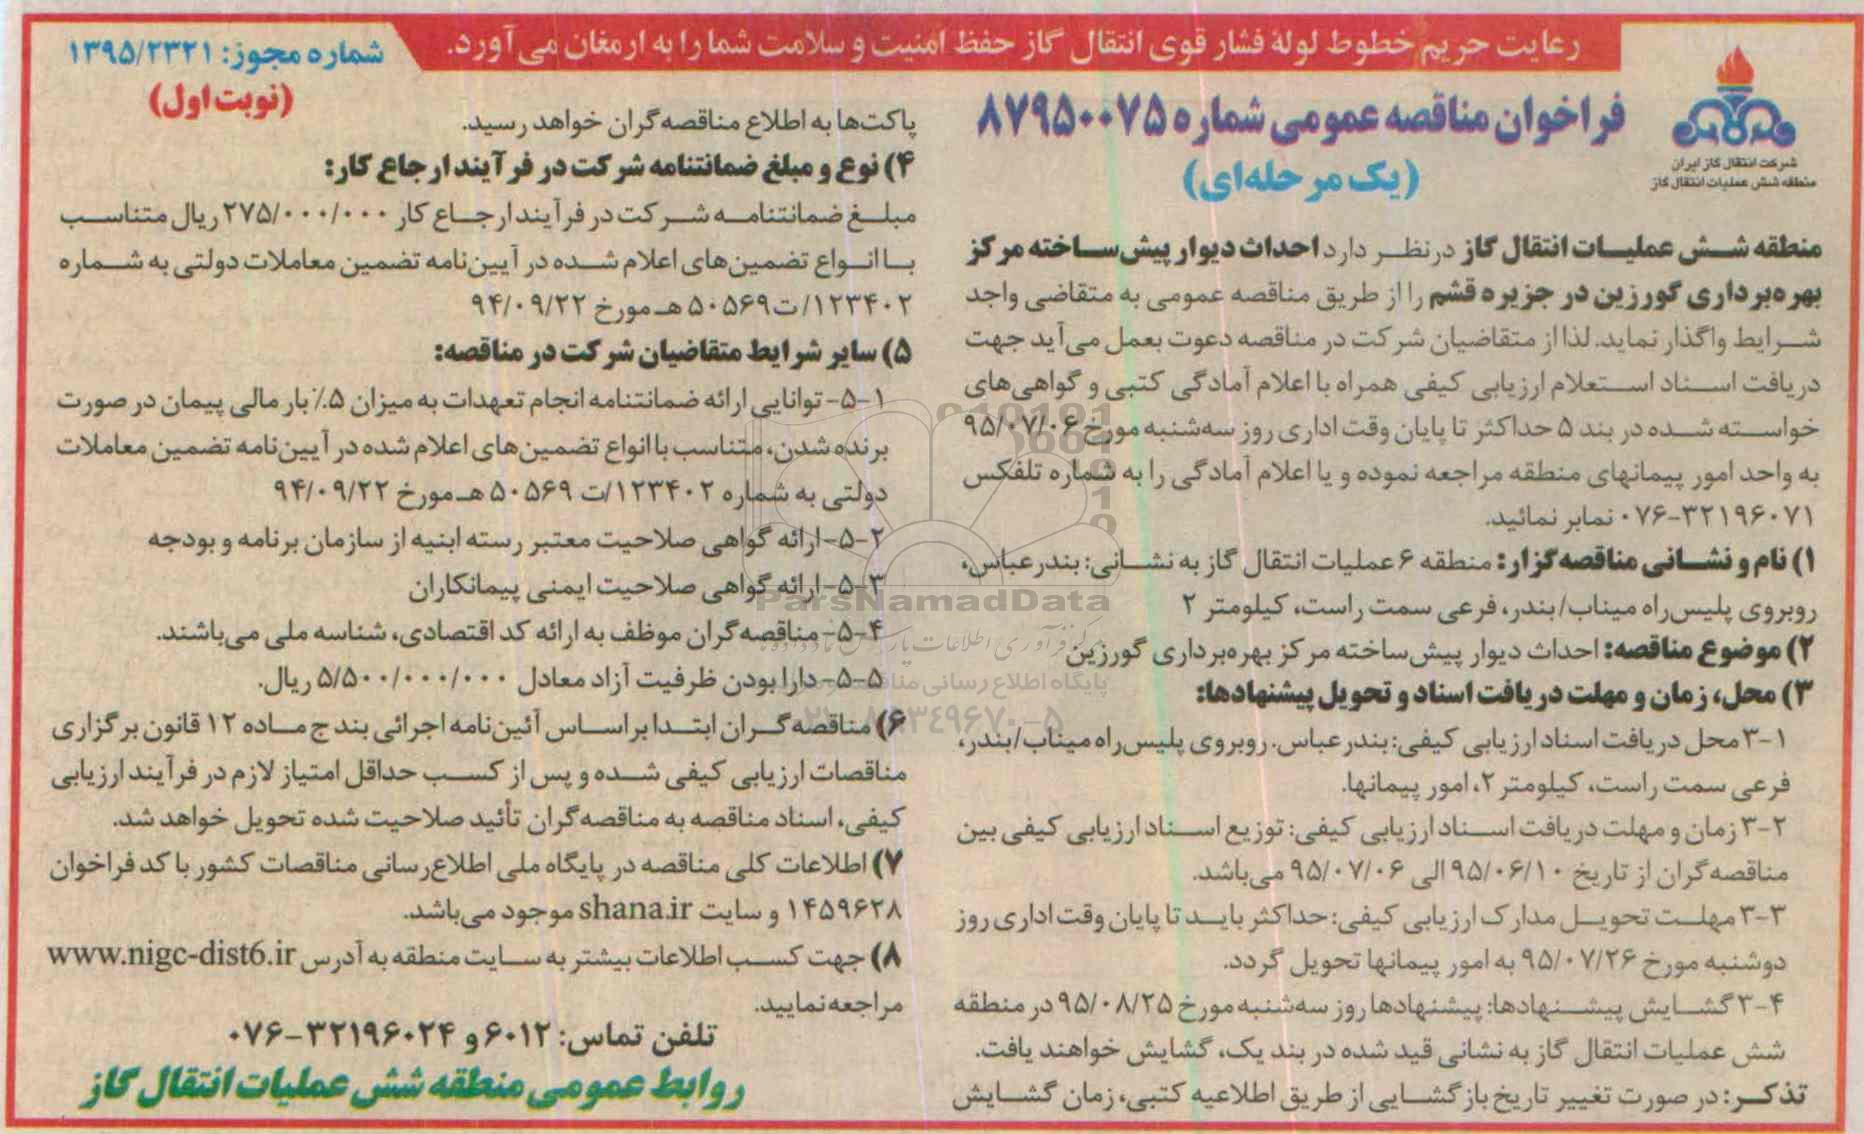 رعایت حریم خطوط لولهٔ فشار قوی انتقال گاز حفظ امنیت و سلامت شما را به ارمغان می‌آورد.
شماره مجوز: ۱۳۹۵/۲۳۲۱
(نوبت اول)
شرکت انتقال گاز ایران
منطقه شش عملیات انتقال گاز
فراخوان مناقصه عمومی شماره ۸۷۹۵۰۰۷۵
(یک مرحله‌ای)
منطقه شش عملیات انتقال گاز در نظر دارد احداث دیوار پیش‌ساخته مرکز
بهره‌برداری گورزین در جزیره قشم را از طریق مناقصه عمومی به متقاضی واجد
شرایط واگذار نماید. لذا از متقاضیان شرکت در مناقصه دعوت بعمل می‌آید جهت
دریافت اسناد استعلام ارزیابی کیفی همراه با اعلام آمادگی کتبی و گواهی‌های
خواسته شده در بند ۵ حداکثر تا پایان وقت اداری روز سه‌شنبه مورخ ۹۵/۰۷/۰۶
به واحد امور پیمانهای منطقه مراجعه نموده و یا اعلام آمادگی را به شماره تلفکس
۰۷۶-۳۲۱۹۶۰۷۱ نمابر نمائید.
۱) نام و نشانی مناقصه‌گزار: منطقه ۶ عملیات انتقال گاز به نشانی: بندرعباس،
روبروی پلیس‌راه میناب/بندر، فرعی سمت راست، کیلومتر ۲
۲) موضوع مناقصه: احداث دیوار پیش‌ساخته مرکز بهره‌برداری گورزین
۳) محل، زمان و مهلت دریافت اسناد و تحویل پیشنهادها:
۳-۱ محل دریافت اسناد ارزیابی کیفی: بندرعباس. روبروی پلیس‌راه میناب/بندر،
فرعی سمت راست، کیلومتر ۲، امور پیمانها.
۳-۲ زمان و مهلت دریافت اسناد ارزیابی کیفی: توزیع اسناد ارزیابی کیفی بین
مناقصه‌گران از تاریخ ۹۵/۰۶/۱۰ الی ۹۵/۰۷/۰۶ می‌باشد.
۳-۳ مهلت تحویل مدارک ارزیابی کیفی: حداکثر باید تا پایان وقت اداری روز
دوشنبه مورخ ۹۵/۰۷/۲۶ به امور پیمانها تحویل گردد.
۳-۴ گشایش پیشنهادها: پیشنهادها روز سه‌شنبه مورخ ۹۵/۰۸/۲۵ در منطقه
شش عملیات انتقال گاز به نشانی قید شده در بند یک، گشایش خواهند یافت.
تذکر: در صورت تغییر تاریخ بازگشایی از طریق اطلاعیه کتبی، زمان گشایش
پاکت‌ها به اطلاع مناقصه‌گران خواهد رسید.
۴) نوع و مبلغ ضمانتنامه شرکت در فرآیند ارجاع کار:
مبلغ ضمانتنامه شرکت در فرآیند ارجاع کار ۲۷۵/۰۰۰/۰۰۰ ریال متناسب
با انواع تضمین‌های اعلام شده در آیین‌نامه تضمین معاملات دولتی به شماره
۱۲۳۴۰۲/ت۵۰۵۶۹هـ مورخ ۹۴/۰۹/۲۲
۵) سایر شرایط متقاضیان شرکت در مناقصه:
۵-۱- توانایی ارائه ضمانتنامه انجام تعهدات به میزان ۵٪ بار مالی پیمان در صورت
برنده شدن، متناسب با انواع تضمین‌های اعلام شده در آیین‌نامه تضمین معاملات
دولتی به شماره ۱۲۳۴۰۲/ت ۵۰۵۶۹ هـ مورخ ۹۴/۰۹/۲۲
۵-۲- ارائه گواهی صلاحیت معتبر رسته ابنیه از سازمان برنامه و بودجه
۵-۳- ارائه گواهی صلاحیت ایمنی پیمانکاران
۵-۴- مناقصه‌گران موظف به ارائه کد اقتصادی، شناسه ملی می‌باشند.
۵-۵- دارا بودن ظرفیت آزاد معادل ۵/۵۰۰/۰۰۰/۰۰۰ ریال.
۶) مناقصه‌گران ابتدا براساس آئین‌نامه اجرائی بند ج ماده ۱۲ قانون برگزاری
مناقصات ارزیابی کیفی شده و پس از کسب حداقل امتیاز لازم در فرآیند ارزیابی
کیفی، اسناد مناقصه به مناقصه‌گران تأئید صلاحیت شده تحویل خواهد شد.
۷) اطلاعات کلی مناقصه در پایگاه ملی اطلاع‌رسانی مناقصات کشور با کد فراخوان
۱۴۵۹۶۲۸ و سایت shana.ir موجود می‌باشد.
۸) جهت کسب اطلاعات بیشتر به سایت منطقه به آدرس www.nigc-dist6.ir
مراجعه نمایید.
تلفن تماس: ۶۰۱۲ و ۰۷۶-۳۲۱۹۶۰۲۴
روابط عمومی منطقه شش عملیات انتقال گاز
ParsNamadData